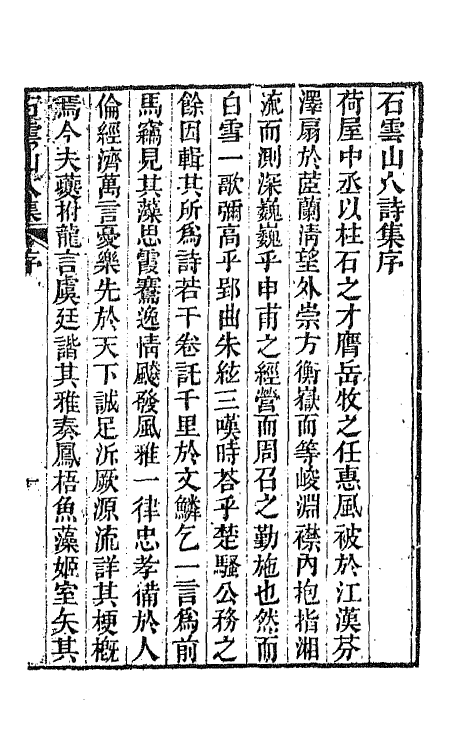 石雲山人詩集序
荷屋中丞以柱石之才膺岳牧之任惠風被於江漢芬
澤扇於茝蘭淸望外崇方衡嶽而等峻淵襟內抱指湘
流而測深巍巍乎申甫之經營而周召之勤施也然而
白雪一歌彌高乎郢曲朱絃三嘆時荅乎楚騷公務之
餘因輯其所爲詩若干卷託千里於文鱗乞一言爲前
馬竊見其藻思霞騫逸情飈發風雅一律忠孝備於人
倫經濟萬言憂樂先於天下誠足泝厥源流詳其梗槪
焉今夫夔拊龍言虞廷諧其雅奏鳳梧魚藻姬室矢其
石雲山人集 序 一